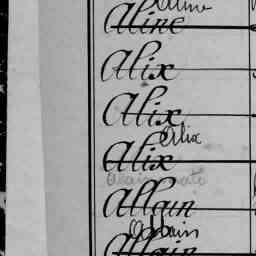 Aline
Aline
Alix
Alix
Alix
Alix
Allain
Allain